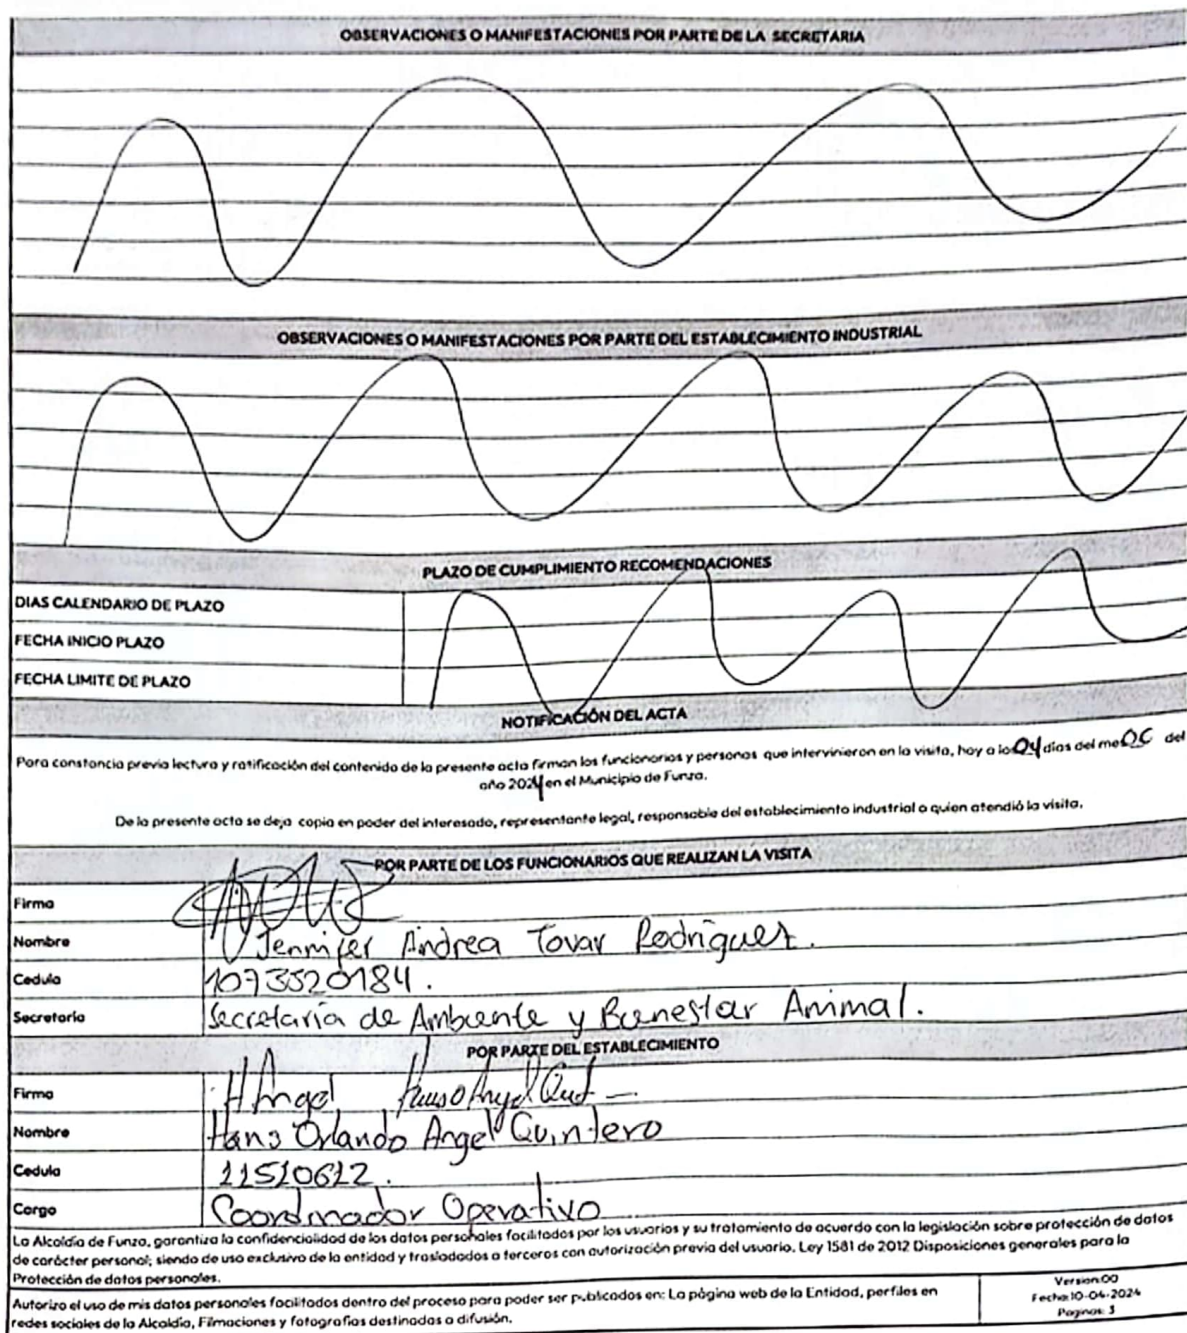 OBSERVACIONES O MANIFESTACIONES POR PARTE DE LA SECRETARIA
OBSERVACIONES O MANIFESTACIONES POR PARTE DEL ESTABLECIMIENTO INDUSTRIAL
PLAZO DE CUMPLIMIENTO RECOMENDACIONES
DIAS CALENDARIO DE PLAZO
FECHA INICIO PLAZO
FECHA LIMITE DE PLAZO
NOTIFICACIÓN DEL ACTA
Para constancia previa lectura y ratificación del contenido de la presente acta firman los funcionarios y personas que intervinieron en la visita, hoy a los 04 días del mes del
año 2024 en el Municipio de Funza.
De la presente acta se deja copia en poder del interesado, representante legal, responsable del establecimiento industrial o quien atendió la visita.
POR PARTE DE LOS FUNCIONARIOS QUE REALIZAN LA VISITA
Firma
Nombre Jennifer Andrea Tovar Rodriguez.
Cedula 1073520184.
Secretaria Secretaria de Ambiente y Bienestar Animal.
POR PARTE DEL ESTABLECIMIENTO
Firma H Angel
Nombre Hans Orlando Angel Quintero
Cedula 11510612.
Cargo Coordinador Operativo
La Alcaldía de Funza, garantiza la confidencialidad de los datos personales facilitados por los usuarios y su tratamiento de acuerdo con la legislación sobre protección de datos
de carácter personal; siendo de uso exclusivo de la entidad y trasladados a terceros con autorización previa del usuario. Ley 1581 de 2012 Disposiciones generales para la
Protección de datos personales.
Autorizo el uso de mis datos personales facilitados dentro del proceso para poder ser publicados en: La página web de la Entidad, perfiles en
redes sociales de la Alcaldía, Filmaciones y fotografías destinadas a difusión.
Version:00
Fecha:10-04-2024
Paginas: 3